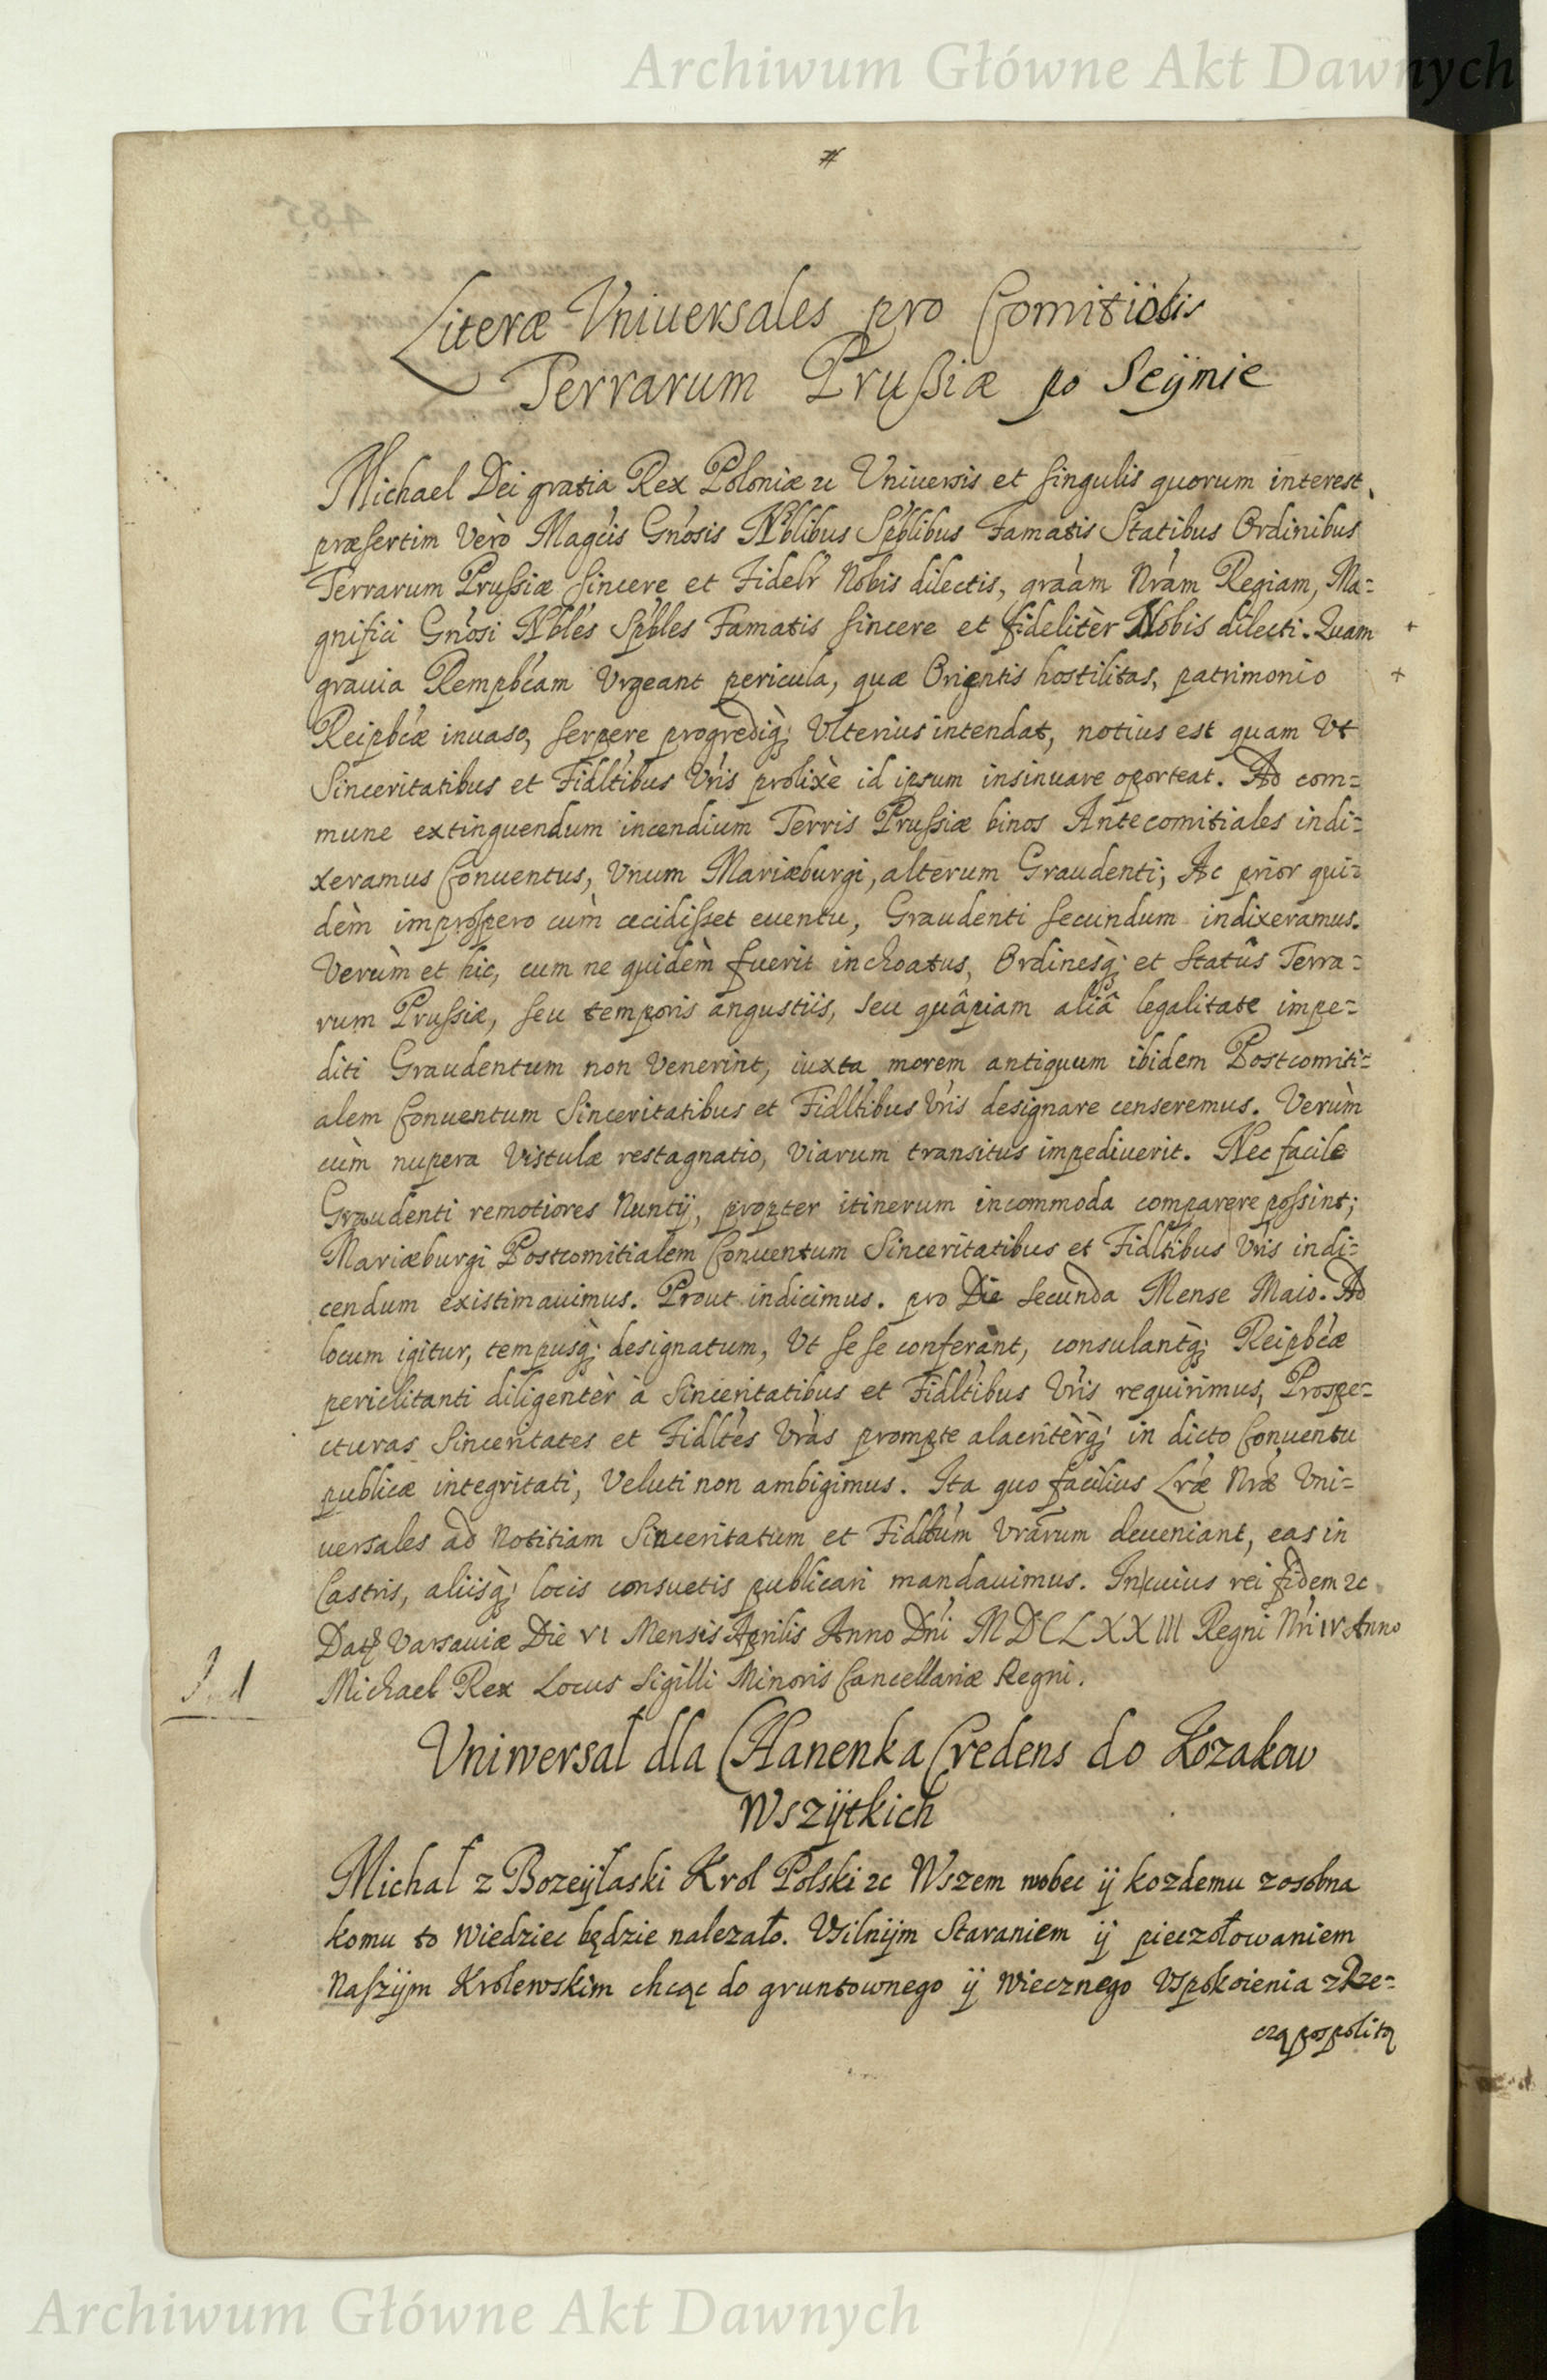 Archiwum Główne Akt Dawnych
Literæ Vniuersales pro Comitiolis
Terrarum Prußiæ po Seÿmie
Michael Dei gratia Rex Poloniæ &c Vniuersis et singulis quorum interest,
præsertim Vèrò Mag'cis Gn'osis N'blibus Sp'blibus Famatis Statibus Ordinibus
Terrarum Prussiæ sincere et Fidelr' Nobis dilectis, graãm Nrãm Regiam, Ma=
gnifici Gn'osi N'bles Sp'bles Famatis sincere et fidelitèr Nobis dilecti. Quam
grauia Rempb'cam Vrgeant pericula, quæ Orientis hostilitas, patrimonio
Reipb'cæ inuaso, serpere progrediq; Vlterius intendat, notius est quam Vt
Sinceritatibus et Fidltibus Vris prolixè id ipsum insinuare oporteat. Ad com=
mune extinguendum incendium Terris Prussiæ binos Antecomitiales indi=
xeramus Conuentus, Vnum Mariæburgi, alterum Graudenti; Ac prior qui=
dèm improspero cùm cecidisset euentu, Graudenti secundum indixeramus.
Verùm et hic, cum ne quidèm fuerit inchoatus, Ordinesq; et Statûs Terra=
rum Prussiæ, seu temporis angustiis, seu quâpiam aliâ legalitate impe=
diti Graudentum non Venerint, iuxta morem antiquum ibidem Postcomiti=
alem Conuentum Sinceritatibus et Fidltibus Vris designare censeremus. Verùm
cùm nupera Vistulæ restagnatio, Viarum transitus impediuerit. Nec facile
Graudenti remotiores Nuntÿ, propter itinerum incommoda comparere possint;
Mariæburgi Postcomitialem Conuentum Sinceritatibus et Fidltibus Vris indi=
cendum existimauimus. Prout indicimus. pro Die secunda Mense Maio. Ad
locum igitur, tempusq; designatum, Vt sese conferant, consulantq; Reipb'cæ
periclitanti diligentèr à Sinceritatibus et Fidltibus Vris requirimus, Prospe=
cturas Sinceritates et Fidltes Vras prompte alacritèrq; in dicto Conuentu
publicæ integritati, Veluti non ambigimus. Ita quo facilius Lræ Nræ Vni=
uersales ad Notitiam Sinceritatum et Fidltum Vrarum deueniant, eas in
Castris, aliisq; locis consuetis publicari mandauimus. In cuius rei fidem &c
Dat Varsauiæ Die VI Mensis Aprilis Anno Dni MDCLXXIII Regni Nri IV Anno
Michael Rex Locus Sigilli Minoris Cancellariæ Regni.
Vniwersał dla Hanenka Credens do Kozakow
Wszÿtkich
Michał z Bozeÿłaski Krol Polski &c Wszem wobec ÿ kozdemu zosobna
komu to Wiedziec będzie nalezało. Vsilnÿm Staraniem ÿ pieczołowaniem
Naszÿm Krolewskim chcąc do gruntownego ÿ Wiecznego Vspokoienia zRze=
cząpospolitą
Archiwum Główne Akt Dawnych